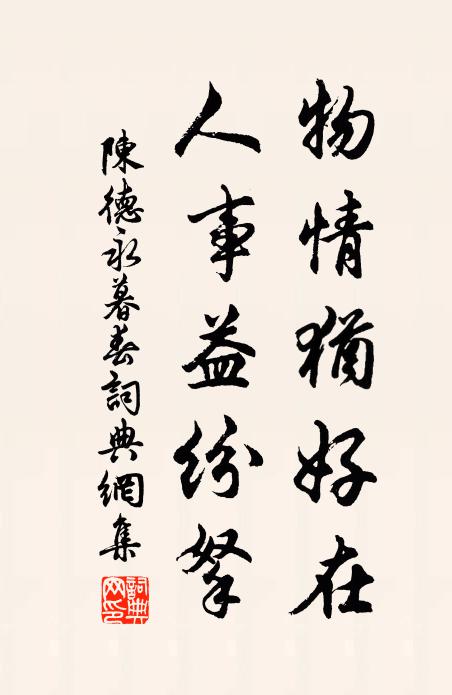 物情猶好在
人事益紛拏
陳德永暮春詞典網集
詞典
网印